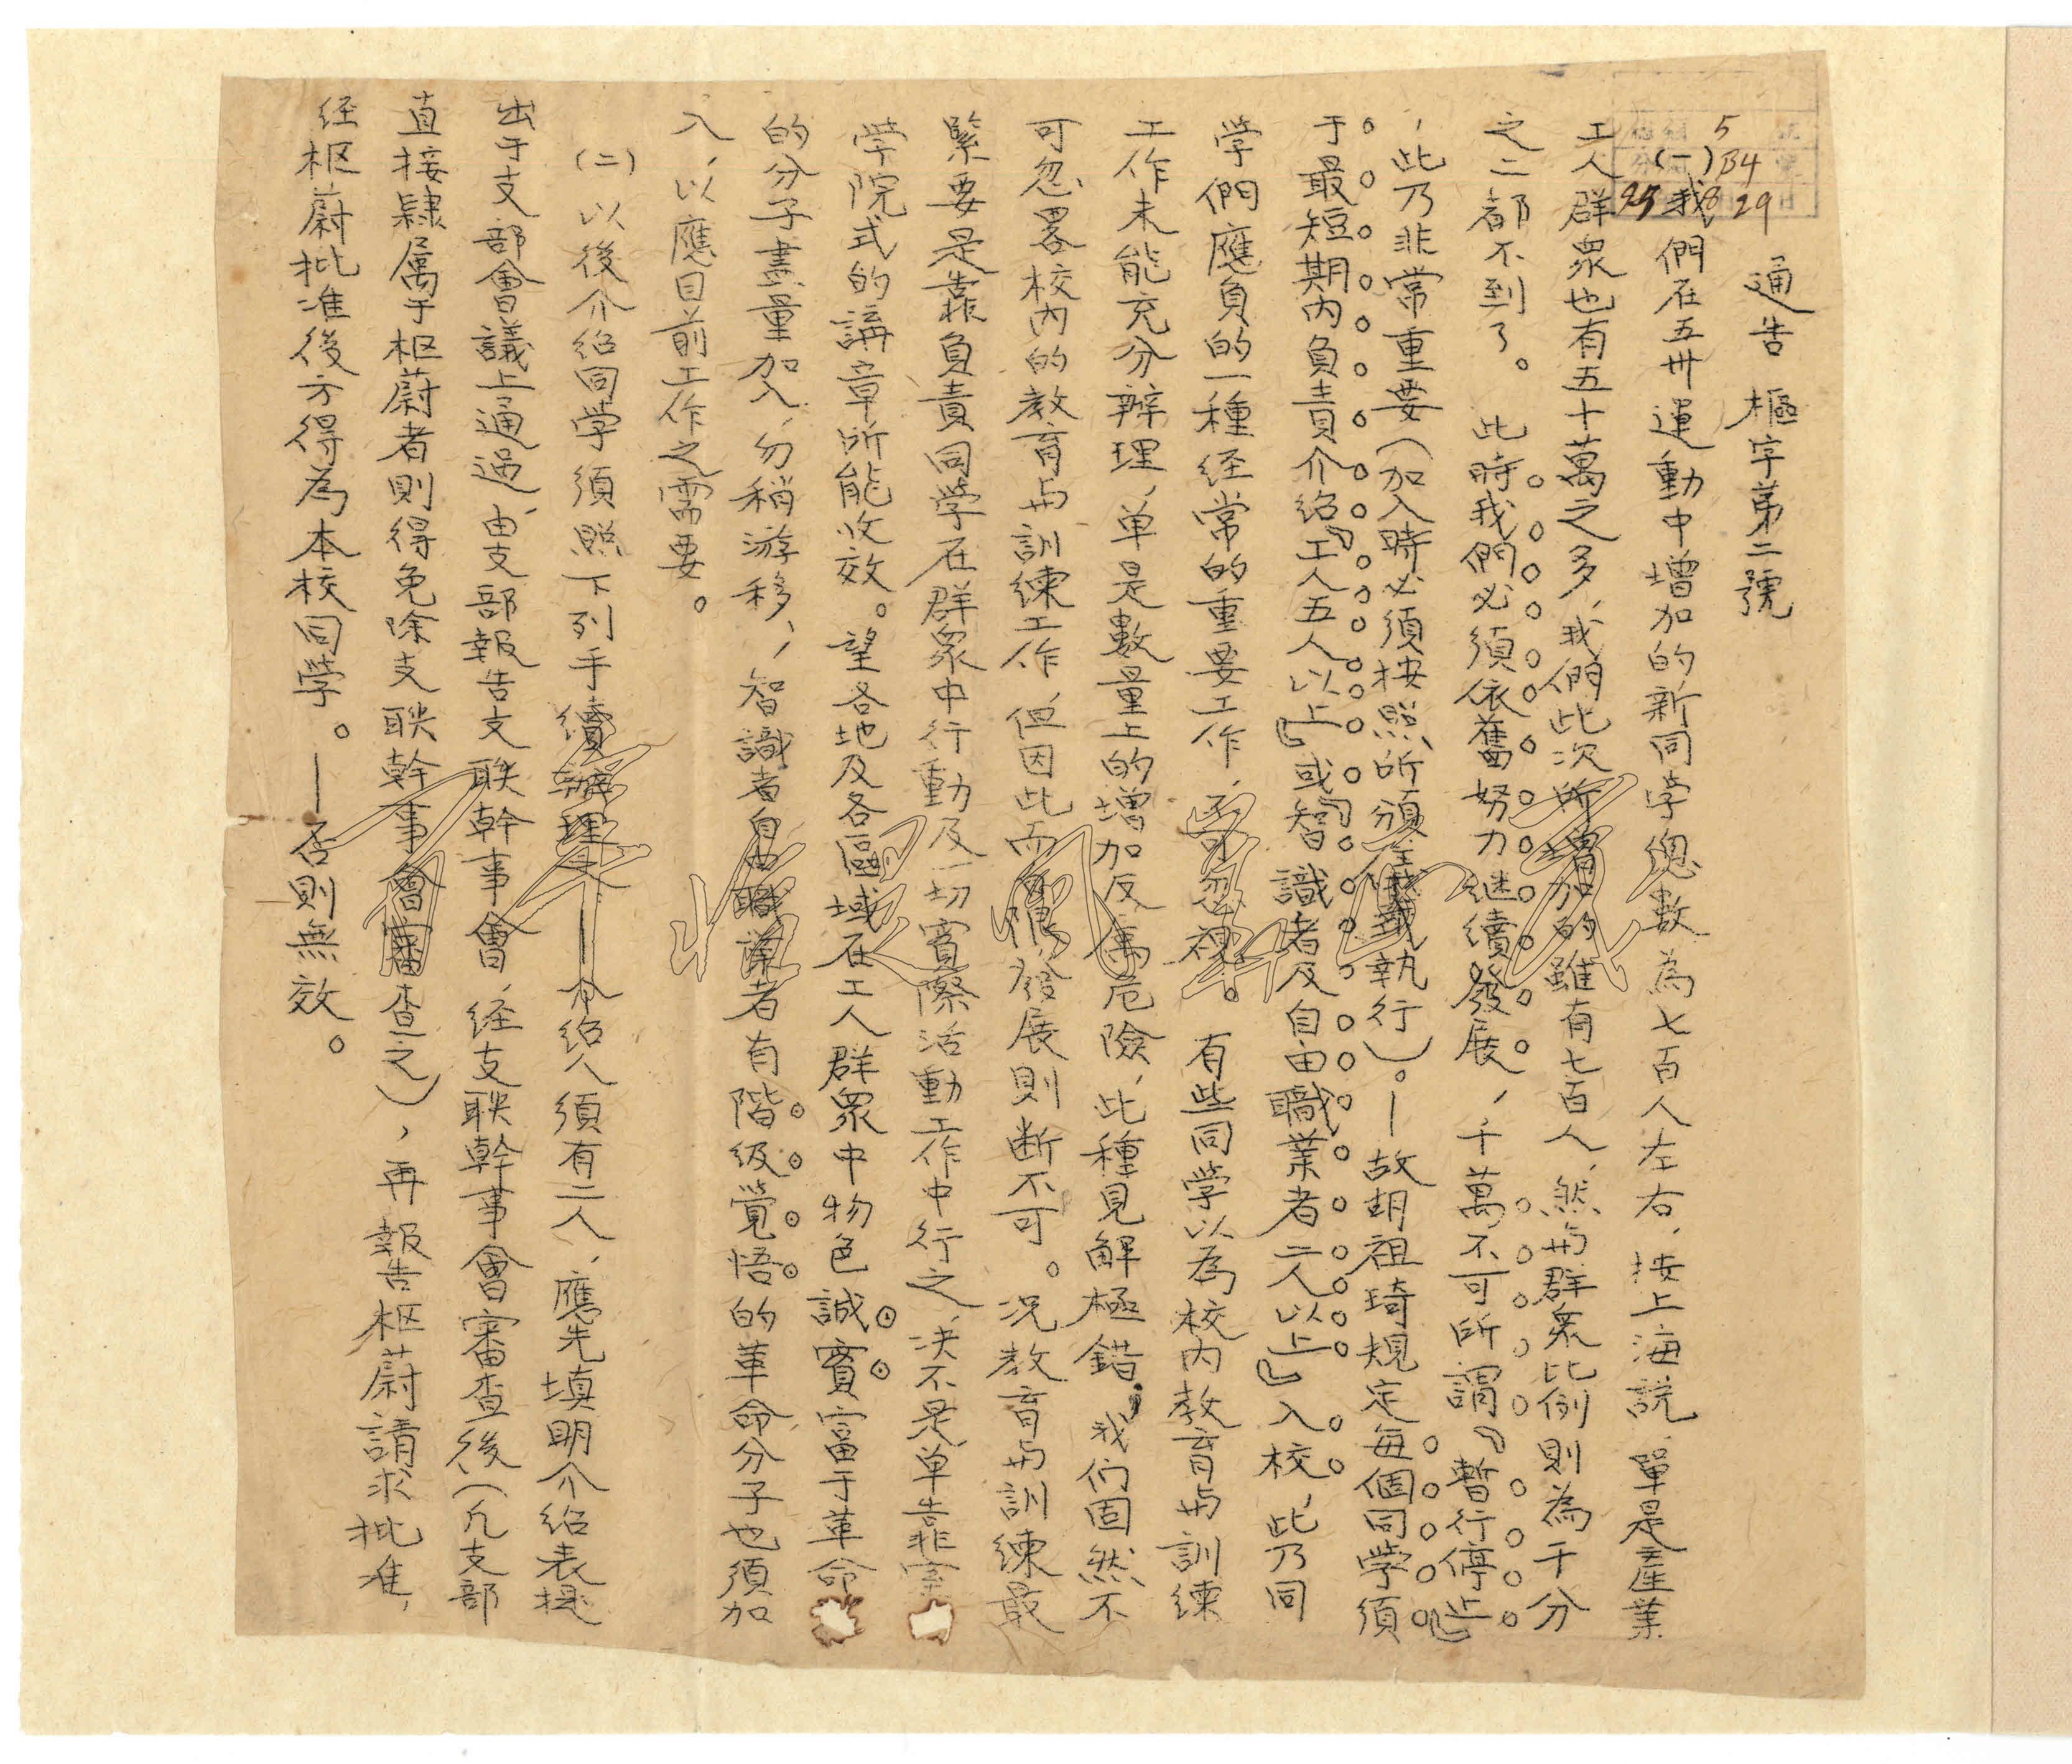 5
B4
25 8 29
通告 樞字第二號
(一)我們在五卅運動中增加的新同学總數為七百人左右，按上海説，單是產業
工人群眾也有五十萬之多，我們此次所增加的雖有七百人，然與群眾比例則為千分
之二都不到了。此時我們必須依舊努力继續發展，千萬不可所謂『暫行停止』
，此乃非常重要（加入時必須按照所頒 執行）。—故胡祖琦規定每個同学須
于最短期内負責介绍『工人五人以上』或『智識者及自由職業者二人以上』入校，此乃同
学們應負的一種经常的重要工作，忽視。有些同学以為校内教育與訓練
工作未能充分辦理，单是數量上的增加反為危險，此種見解極錯，我们固然不
可忽畧校内的教育與訓練工作，但因此而限發展則断不可。况教育與訓練最
緊要是靠負責同学在群眾中行動及一切實際活動工作中行之，决不是单靠
学院式的講章所能收效。望各地及各區域在工人群眾中物色誠實富于革命
的分子盡量加入，勿稍游移，智識者自由職業者有階级覚悟的革命分子也須加
入，以應目前工作之需要。
(二)以後介绍同学須照下列手續辦理：—介绍人須有二人，應先填明介绍表提
出于支部會議上通過，由支部報告支联幹事會，经支联幹事會審查後（凡支部
直接隸属于枢蔚者則得免除支联幹事會審查之），再報告枢蔚請求批准，
经枢蔚批准後方得為本校同学。—否則無效。